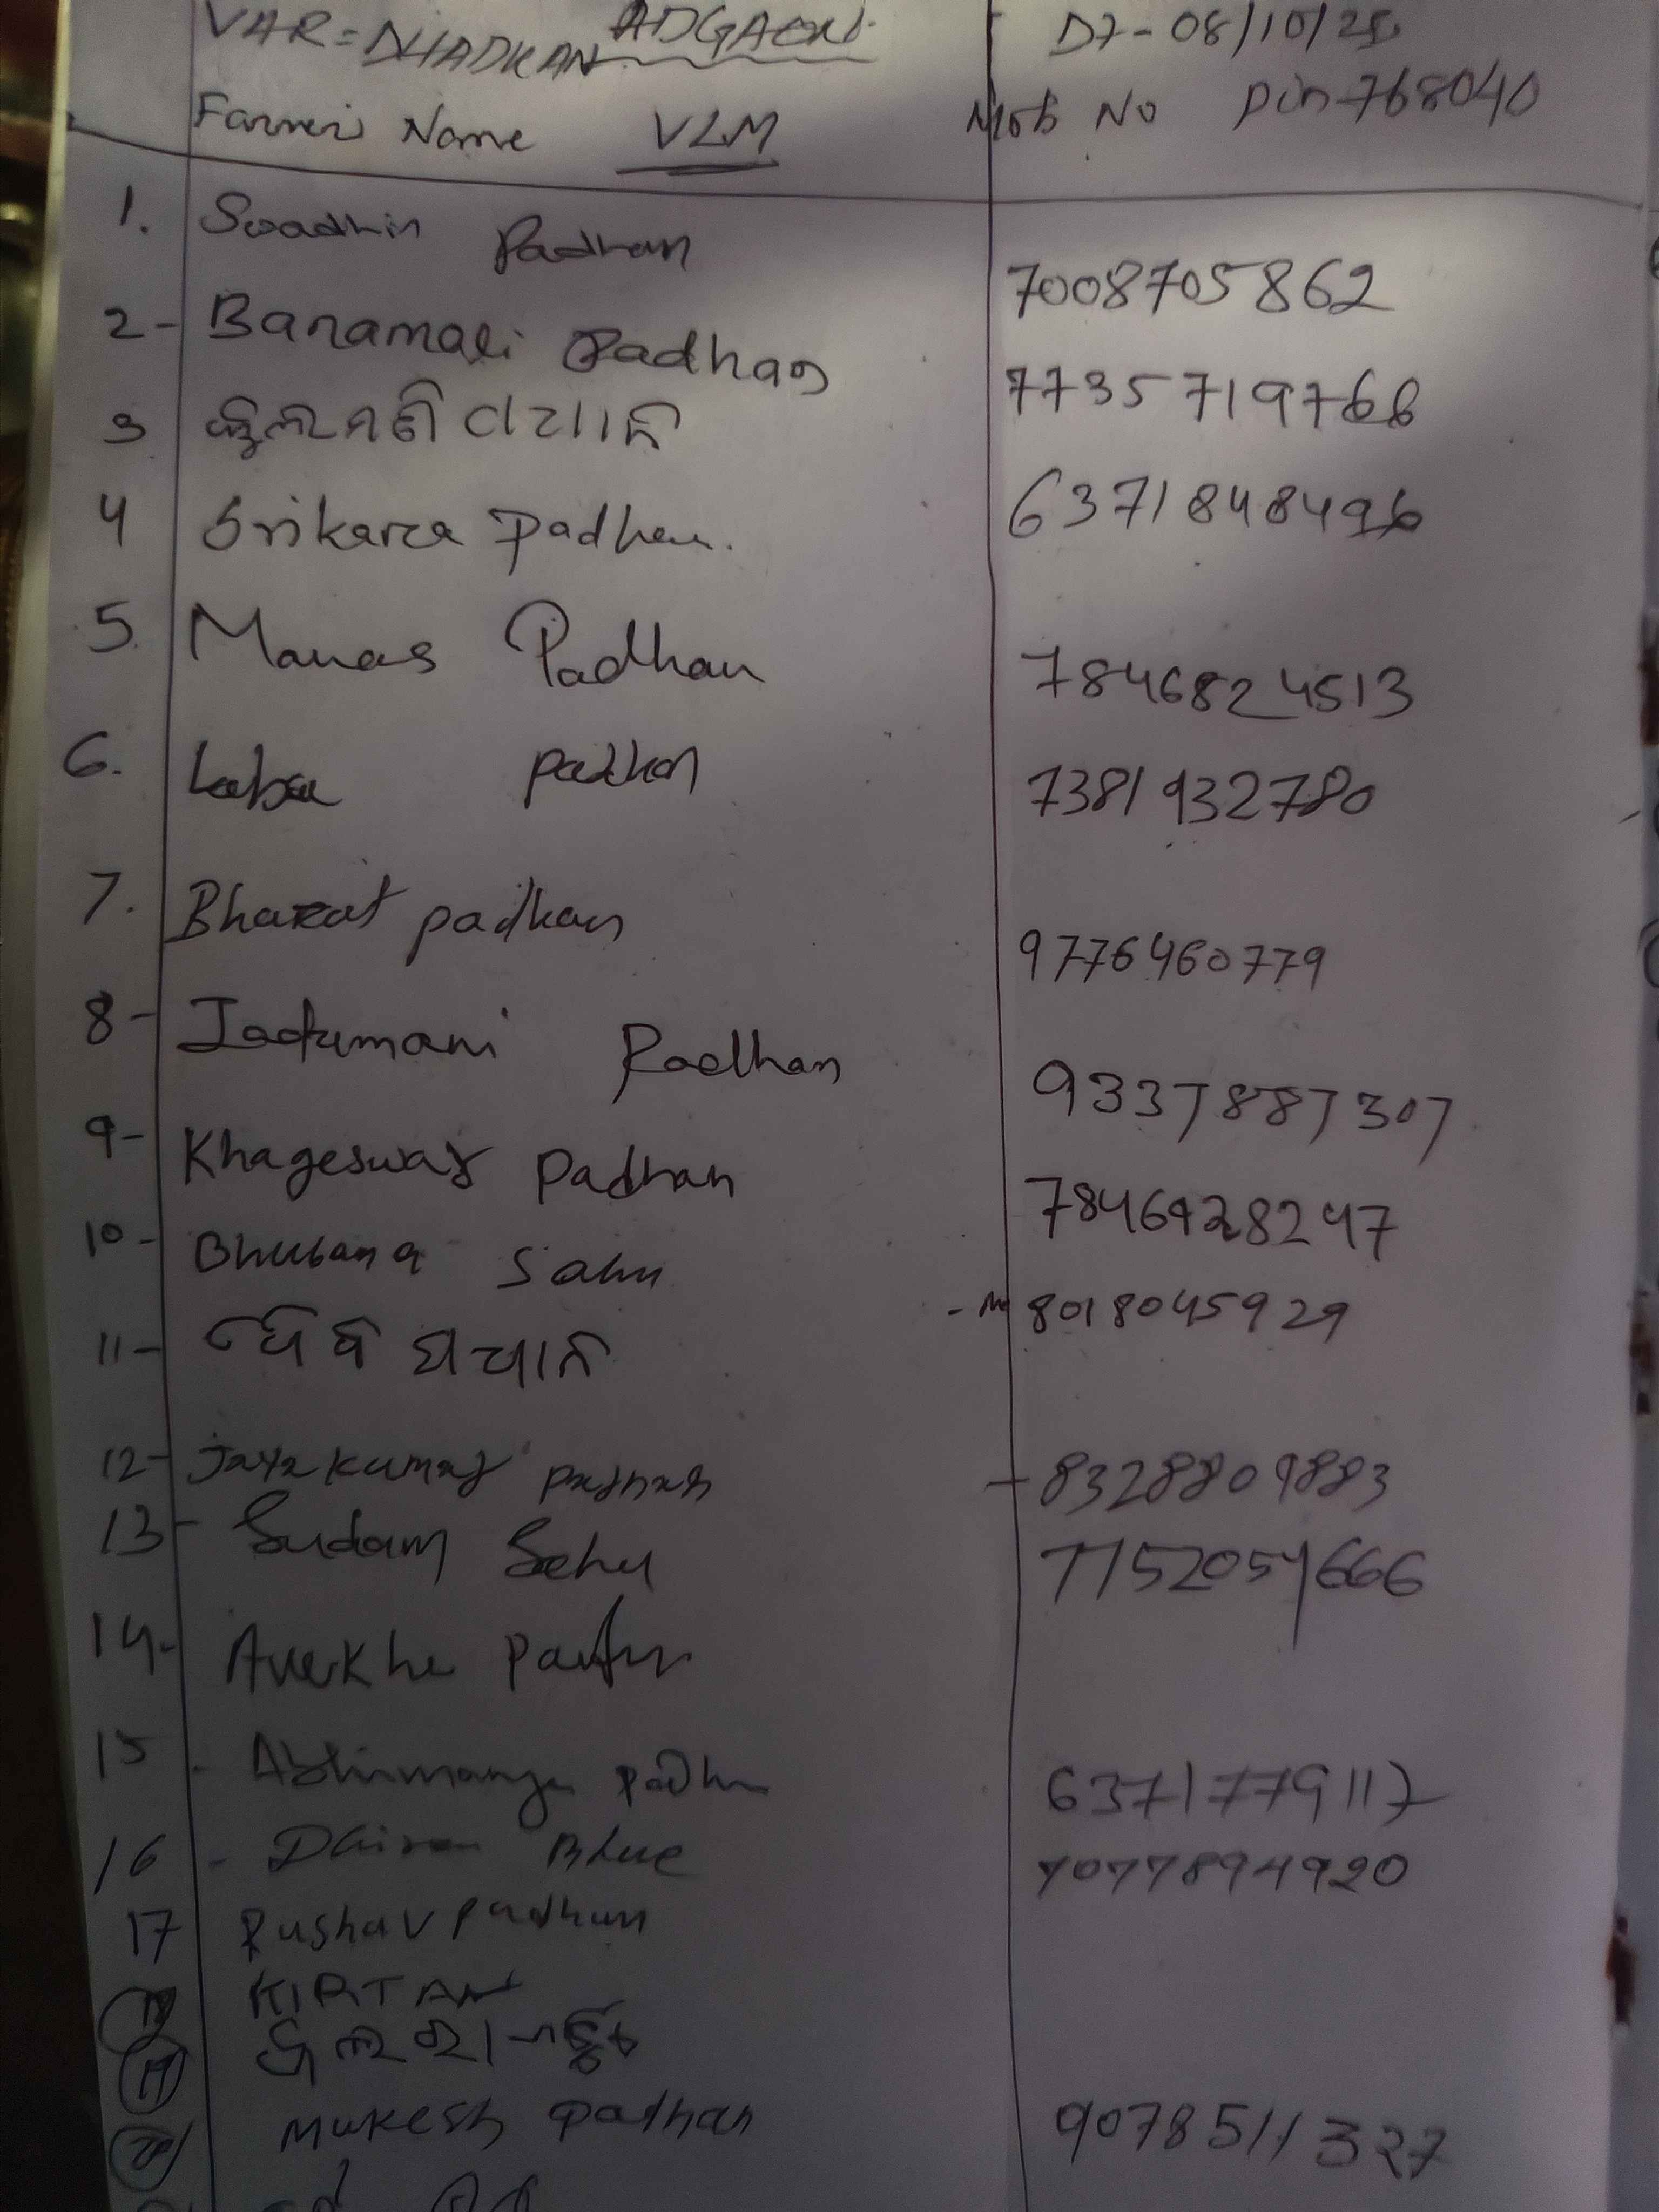 VAR=DHADKAN ADGAON DT-08/10/25
Farmer Name VLM Mob No pin-768040
1. Swadhin Padhan 7008705862
2- Banamali Padhan 7735719766
3 ପଧାନ
4 Srikara Padhan. 6371848496
5. Manas Padhan 7846824513
6. Laba padhan 7381932780
7. Bharat padhan 9776460779
8- Jadumani Padhan 9337887307
9- Khageswar Padhan 7846428247
10- Bhubana Sahu - 8018045929
11- ପଧାନ
12- Jaya kumar padhan - 8328809883
13- Sudam Sahu 7752054666
14-
15 - Abhimanyu padhan 6371779117
16 - Bhue 7077894920
17 Rushav padhan
18 KIRTAN
19
20 Mukesh padhan 9078511327